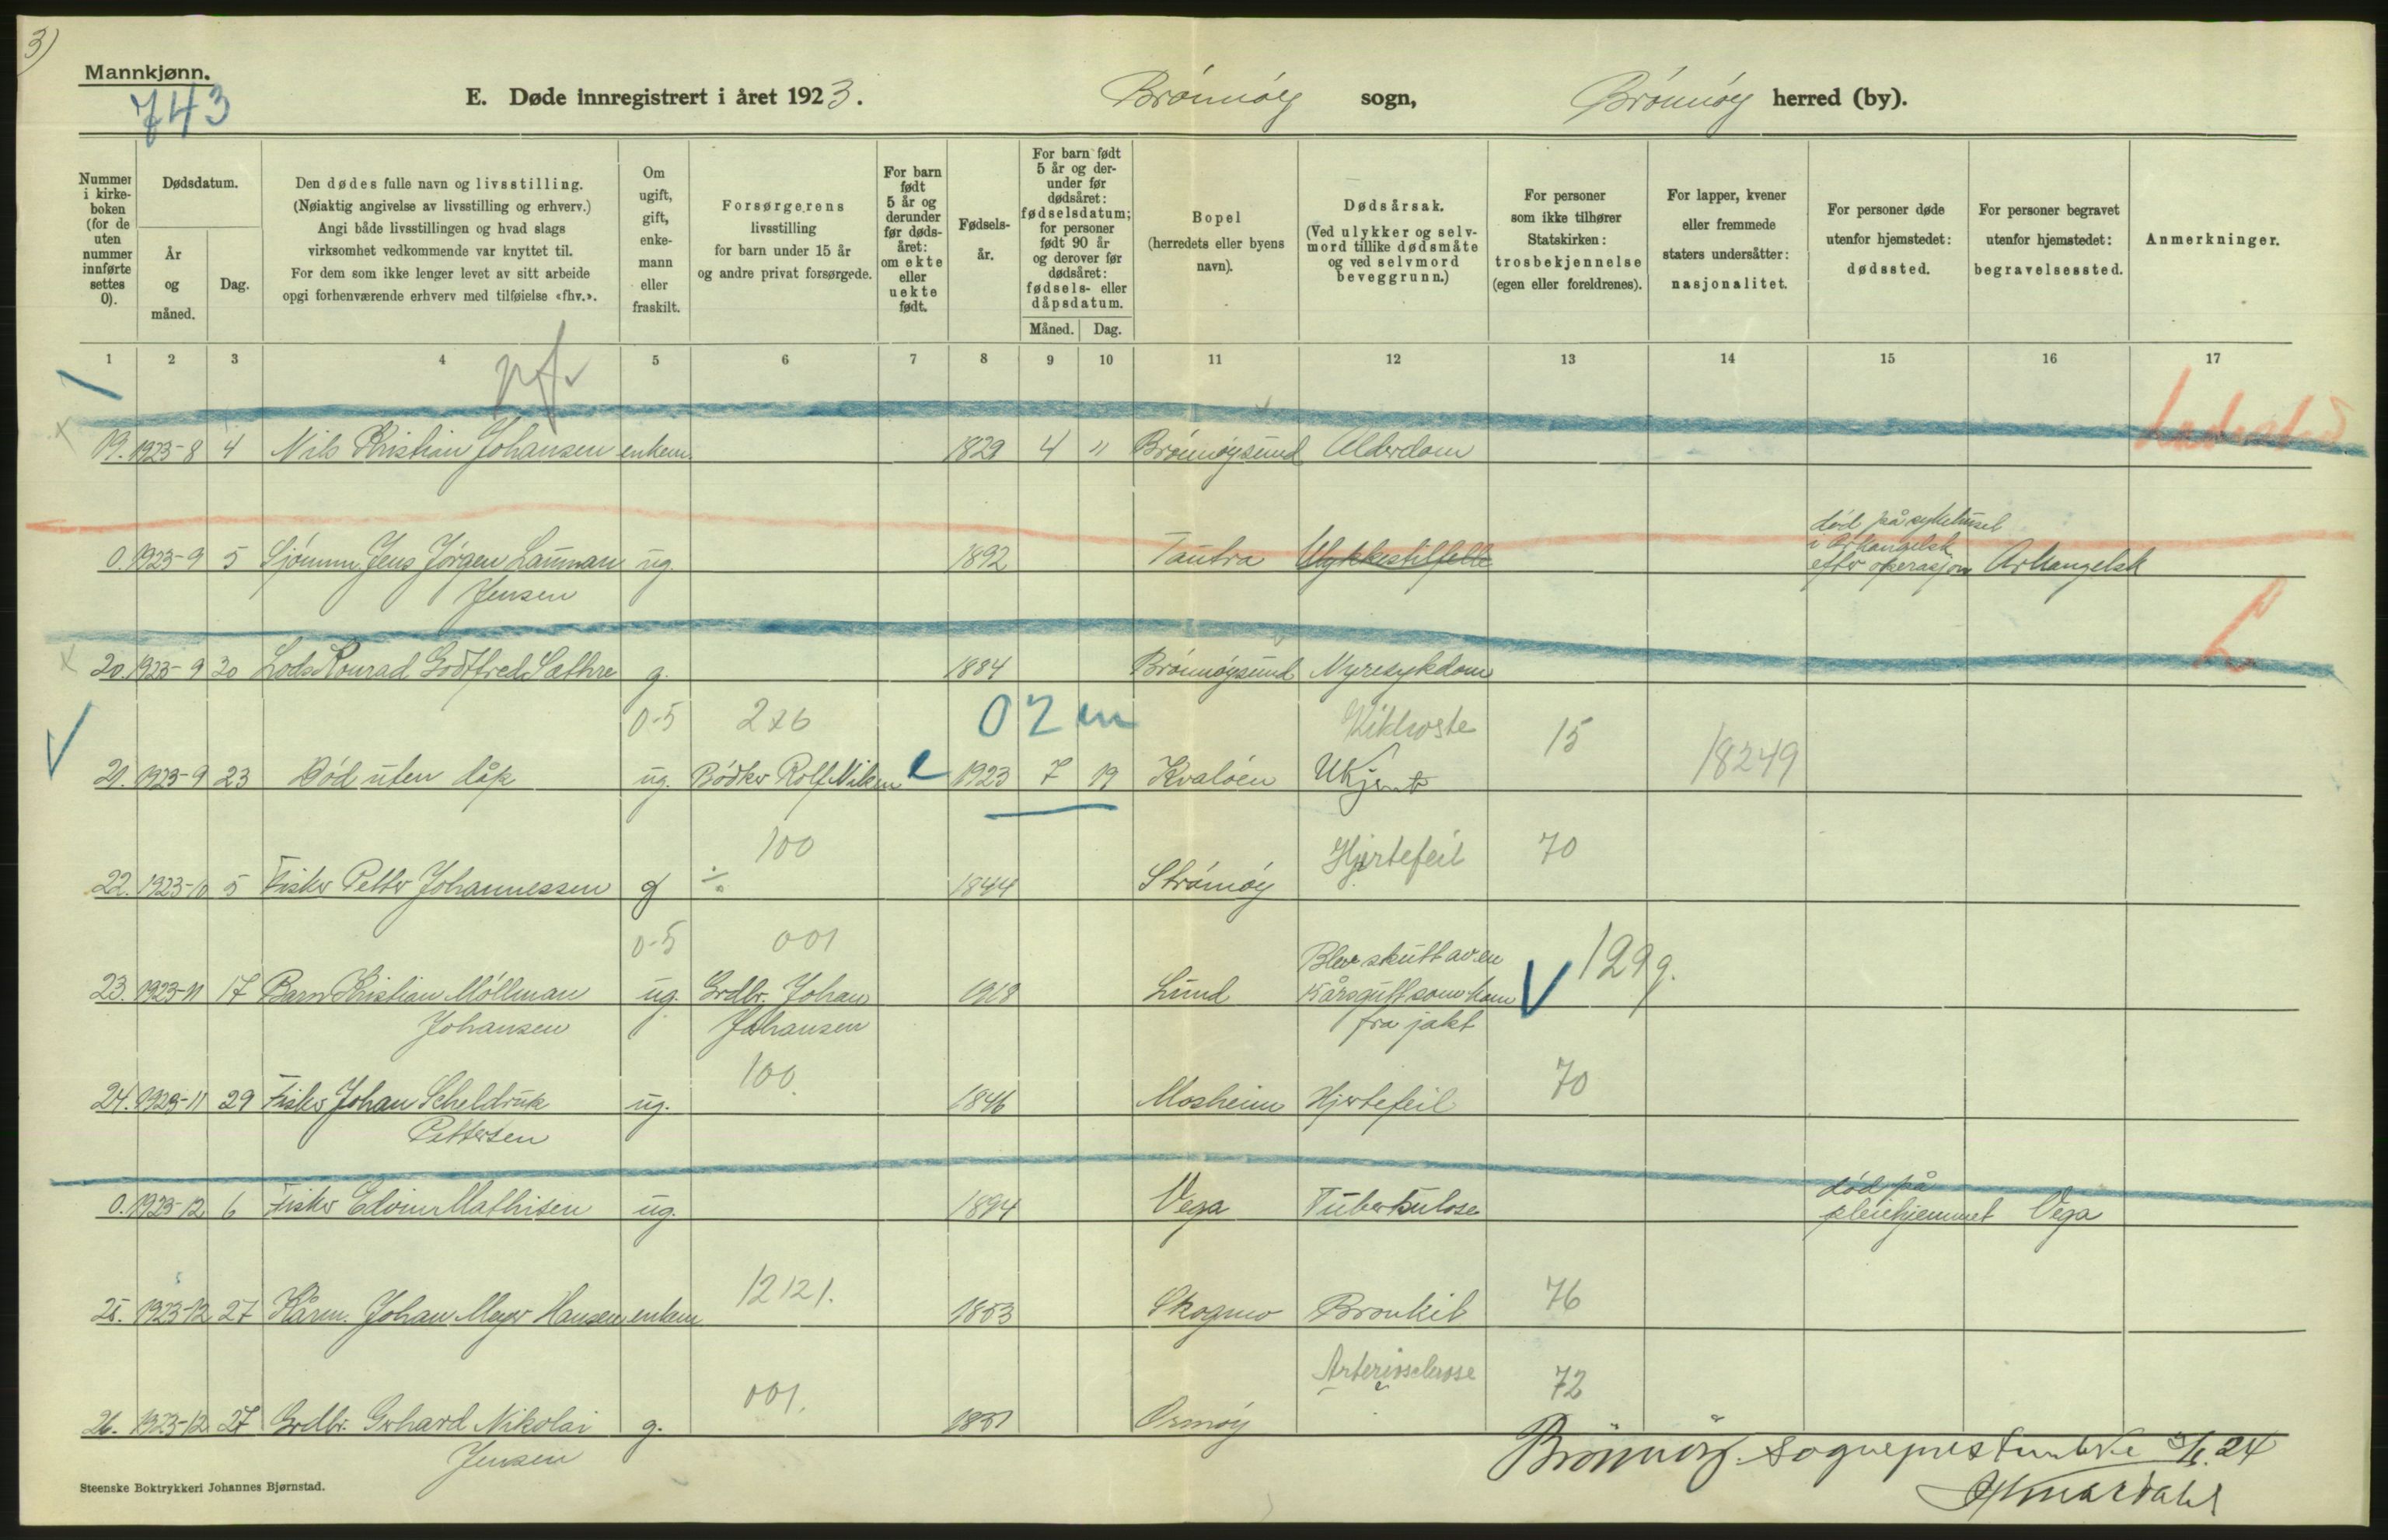 3)
Mannkjønn.
743
E. Døde innregistrert i året 1923. Brønnøy sogn, Brønnøy herred (by).
Nummer i kirke- boken (for de uten nummer innførte settes 0).
Dødsdatum.
År og måned.
Dag.
Den dødes fulle navn og livsstilling.
(Nøiaktig angivelse av livsstilling og erhverv.)
Angi både livsstillingen og hvad slags
virksomhet vedkommende var knyttet til.
For dem som ikke lenger levet av sitt arbeide
opgi forhenværende erhverv med tilføielse «fhv.».
Om ugift, gift, enke- mann eller fraskilt.
Forsørgerens
livsstilling
for barn under 15 år
og andre privat forsørgede.
For barn født 5 år og derunder før døds- året: om ekte eller uekte født.
Fødsels- år.
For barn født 5 år og der- under før dødsåret: fødselsdatum; for personer født 90 år og derover før dødsåret: fødsels- eller dåpsdatum.
Måned. Dag.
Bopel
(herredets eller byens
navn).
Dødsårsak.
(Ved ulykker og selv-
mord tillike dødsmåte
og ved selvmord
beveggrunn.)
For personer
som ikke tilhører
Statskirken:
trosbekjennelse
(egen eller foreldrenes).
For lapper, kvener
eller fremmede
staters undersåtter:
nasjonalitet.
For personer døde
utenfor hjemstedet:
dødssted.
For personer begravet
utenfor hjemstedet:
begravelsessted.
Anmerkninger.
1 2 3 4 5 6 7 8 9 10 11 12 13 14 15 16 17
Ladested
19. 1923-8 4 Nils Kristian Johansen enkem. 1829 4 " Brønnøysund Alderdom
død på sykehuset
i Arkangelsk
0. 1923-9 5 Sjømm. Jens Jørgen Lauman ug. 1892 Tautra Ulykkestilfelle efter operasjon Arkangelsk
Jensen
L
20. 1923-9 30 Lods Konrad Godtfred Sæthre g. 1884 Brønnøysund Nyresykdom
0-5 226 02m Kikhoste 15 18249
21. 1923-9 23 Død uten dåp ug. Bødker Rolf Nilsen e 1923 7 19 Kvaløen Ukjent
100 Hjertefeil 70
22. 1923-10 5 Fisker Petter Johannessen g ÷ 1844 Strømøy
0-5 001 Blev skutt av en 129g.
23. 1923-11 17 Barn Kristian Møllman ug. Grdbr. Johan 1918 Lund 15 årsgutt som kom
Johansen Johansen fra jakt
100 70
24. 1923-11 29 Fisker Johan Scheldrup ug. 1846 Mosheim Hjertefeil
Pettersen
død på
0. 1923-12 6 Fisker Edvin Mathisen ug. 1894 Vega Tuberkulose pleiehjemmet Vega
12121. 76
25. 1923-12 27 Kårm. Johan Meyer Hansen enkem 1853 Skogmo Bronkit
001. Arteriosclerose 72
26. 1923-12 27 Grdbr. Gerhard Nikolai g. 1851 Ormøy
Jensen
Brønnøy sogneprestembede 24
Steenske Boktrykkeri Johannes Bjørnstad.